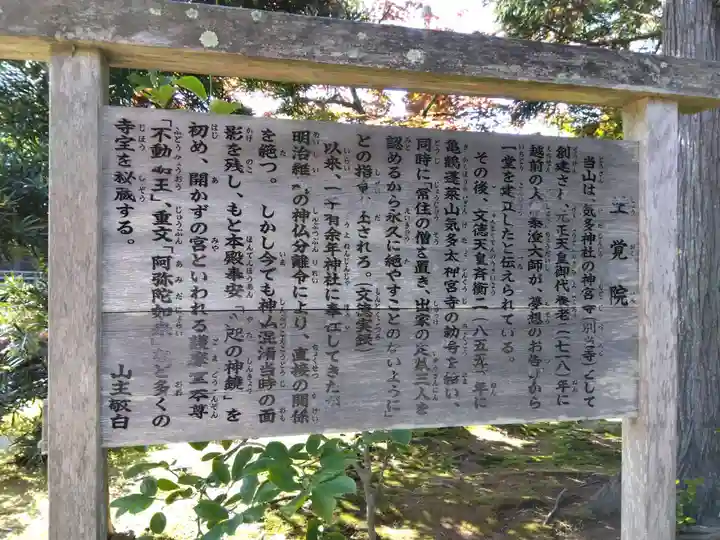 正覚院
当山は、気多神社の神宮寺(別当寺)として
創建され、元正天皇御代養老二(七一八)年に
越前の人、泰澄大師が、夢想のお告げから
一堂を建立したと伝えられている。
その後、文徳天皇斉衡二(八五五)年に
亀鶴蓬莱山気多太神宮寺の勅号を賜い、
同時に「常住の僧を置き、出家の定員三人を
認めるから永久に絶やすことのないように」
との指令が出される。(文徳実録)
以来、一千有余年神社に奉仕してきたが
明治維新の神仏分離令により、直接の関係
を絶つ。しかし今でも神仏混淆当時の面
影を残し、もと本殿奉安「咫の神鏡」を
初め、開かずの宮といわれる護摩堂本尊
「不動明王」重文「阿弥陀如来」など多くの
寺宝を秘蔵する。
山主敬白